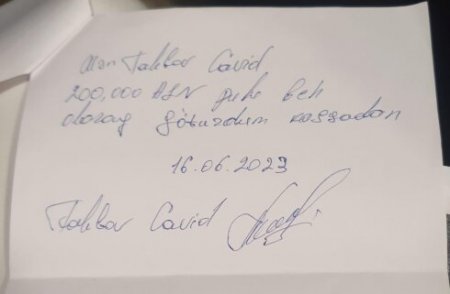 Mən Tahbov Cavid
200,000 AZN puhu beh
olaraq götürdüm kassadan
16.06.2023
Tahbov Cavid